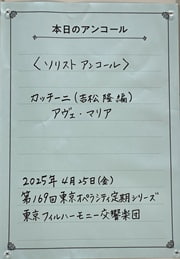 本日のアンコール
〈ソリストアンコール〉
カッチーニ(吉松隆編)
アヴェ・マリア
2025年4月25日(金)
第169回東京オペラシティ定期シリーズ
東京フィルハーモニー交響楽団